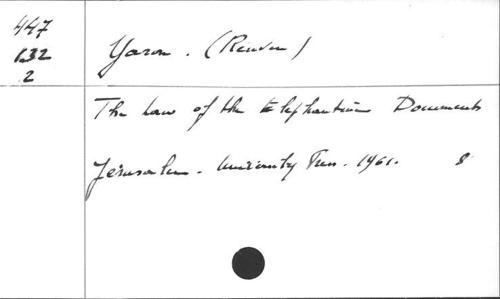 447
132
2
Yaron. (Reuven)
The Law of the Elephantine Documents
Jerusalem. University Press. 1961. 8